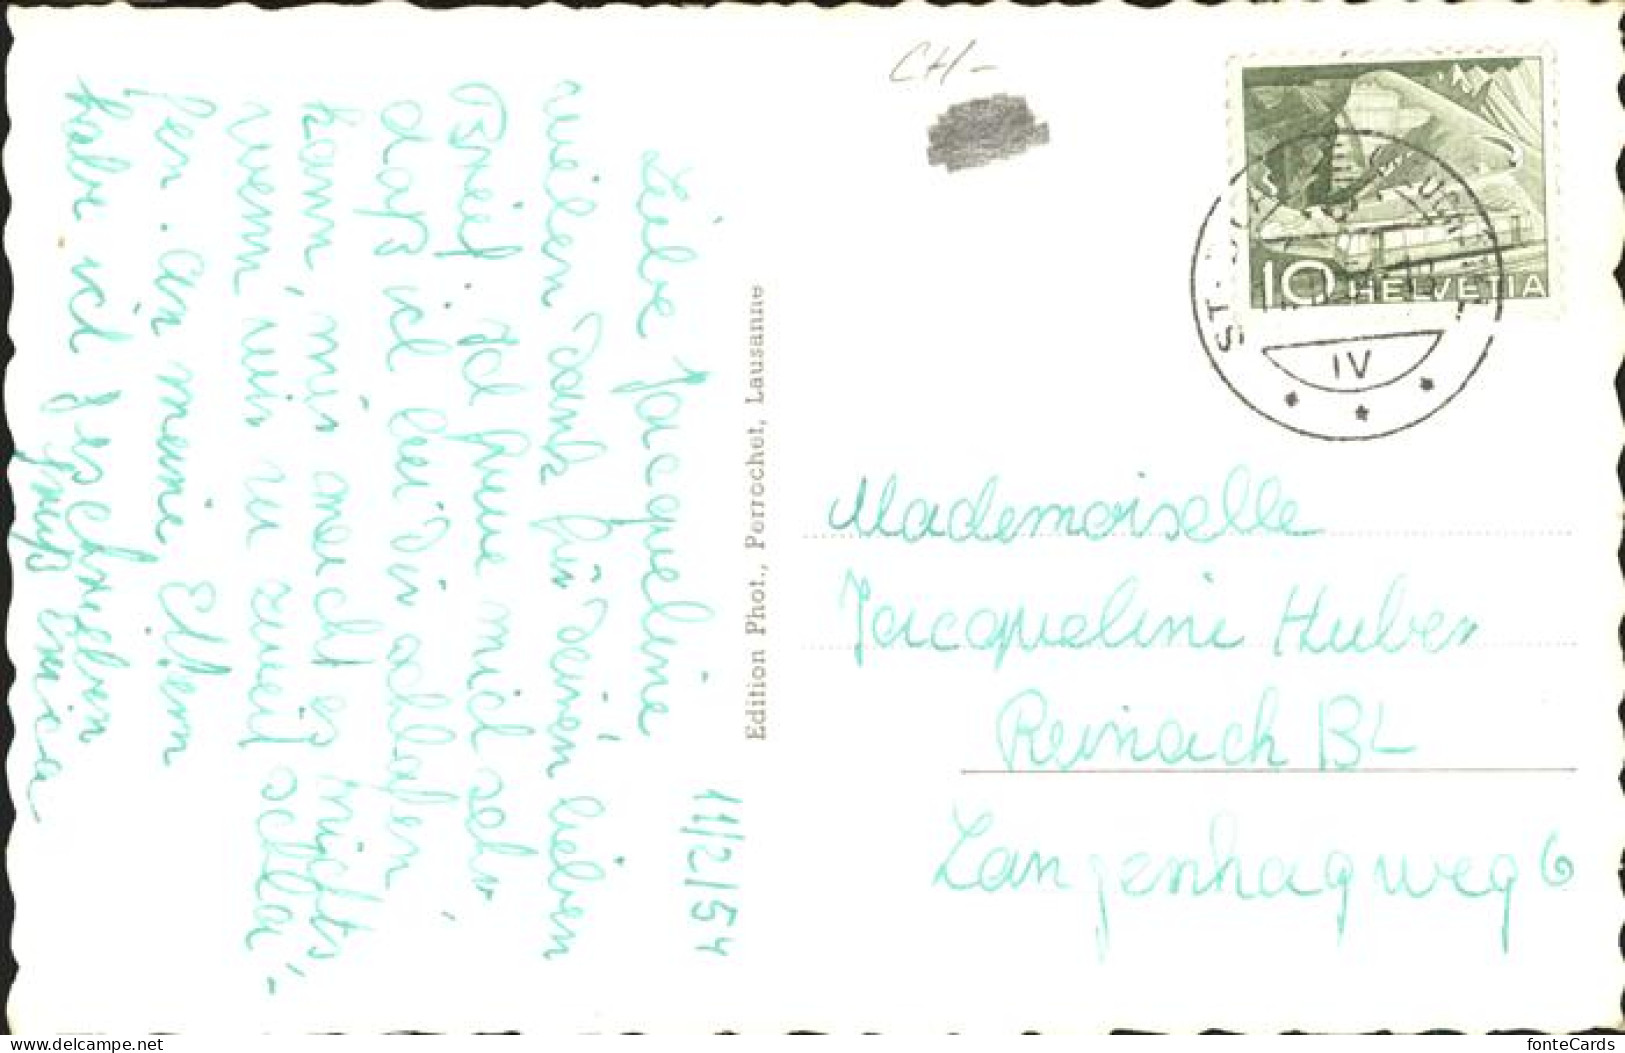 CH-
10 HELVETIA
ST.
IV
11/2/54
Liebe Jacqueline
vielen Dank für Deinen lieben
Brief. Ich freue mich sehr
daß ich bei Dir schlafen
kann, mir macht es nichts,
wenn wir zu zweit schla-
fen. An meine Eltern
habe ich geschrieben
Gruß
Edition Phot., Perrochet, Lausanne
Mademoiselle
Jacqueline Huber
Reinach BL
Langenhagweg 6
fonteCards